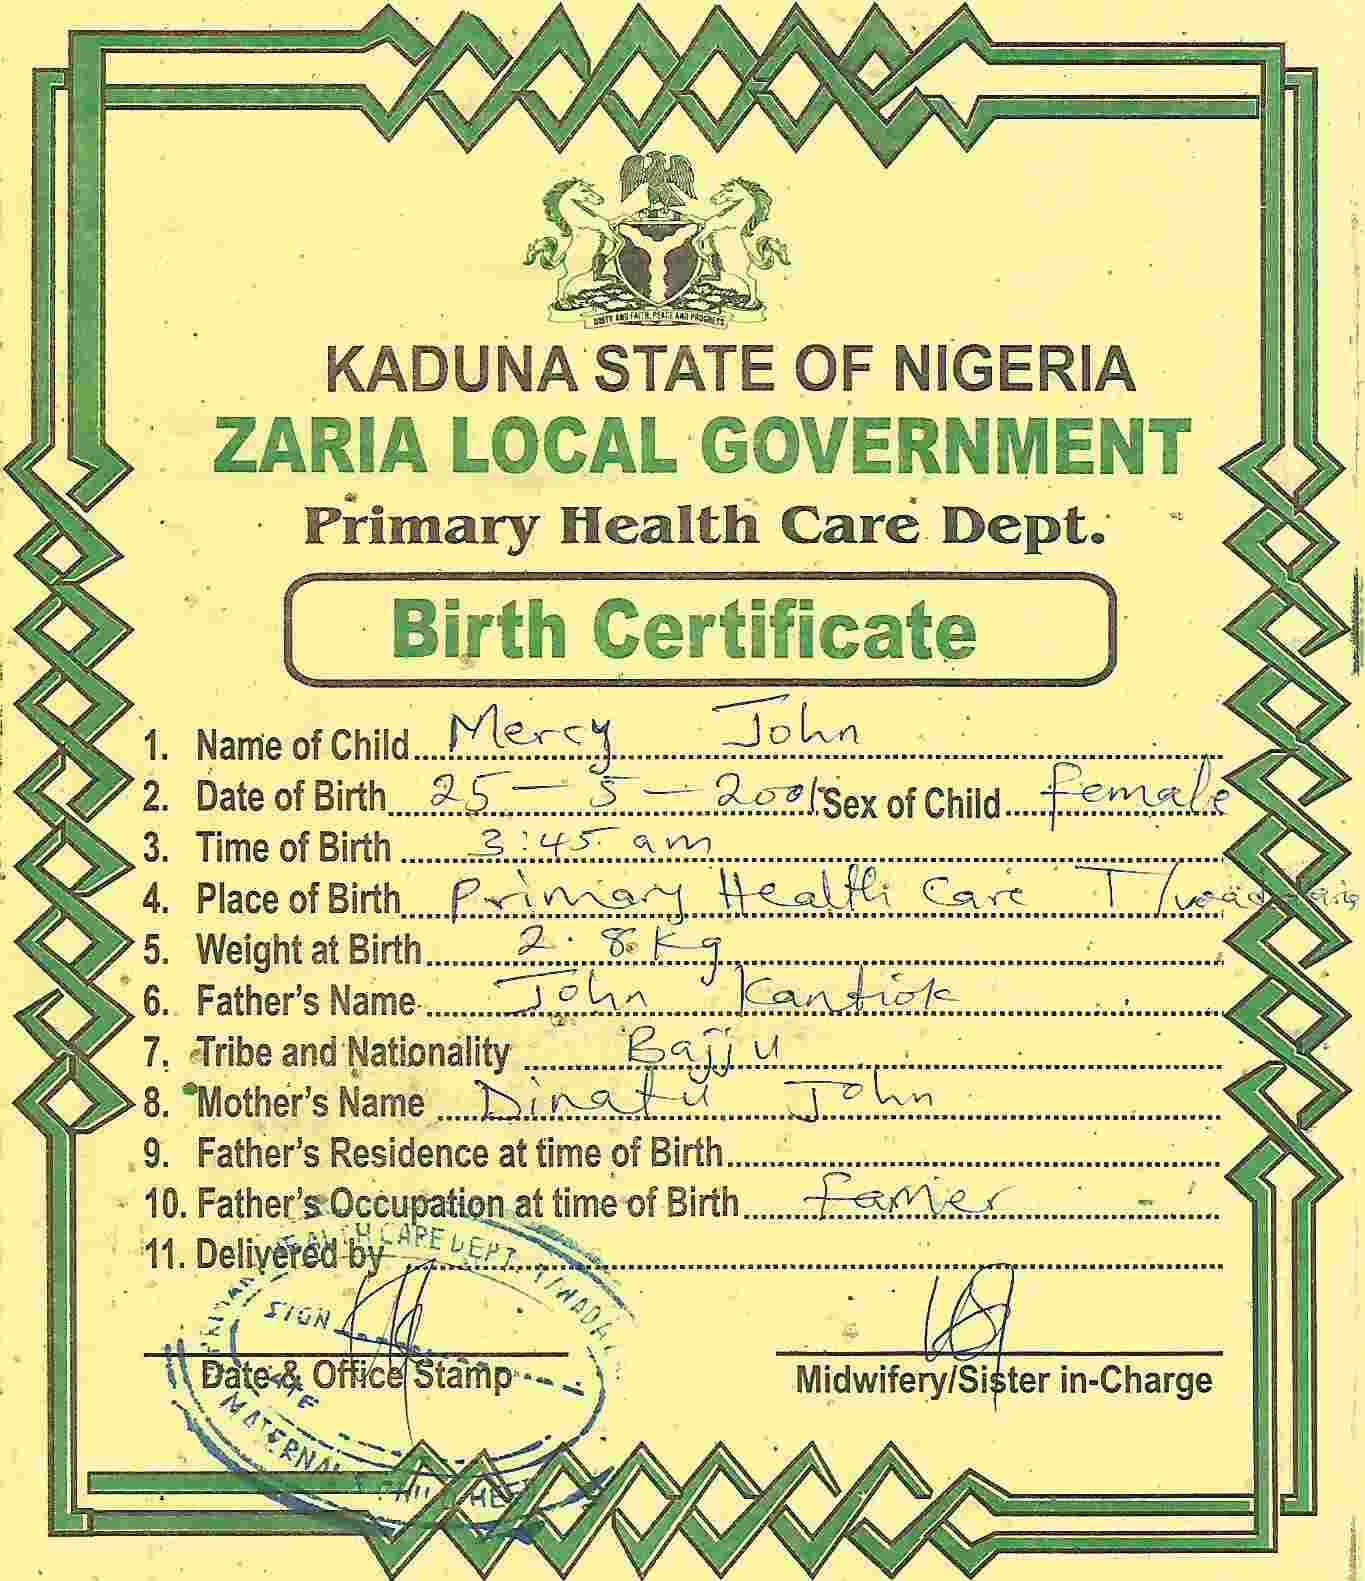 UNITY AND FAITH, PEACE AND PROGRESS
KADUNA STATE OF NIGERIA
ZARIA LOCAL GOVERNMENT
Primary Health Care Dept.
Birth Certificate
1. Name of Child Mercy John
2. Date of Birth 25-5-2001 Sex of Child female
3. Time of Birth 3:45 am
4. Place of Birth Primary Health Care T/wada
5. Weight at Birth 2.8 kg
6. Father's Name John Kantiok
7. Tribe and Nationality Bajju
8. Mother's Name Dinatu John
9. Father's Residence at time of Birth
10. Father's Occupation at time of Birth famer
11. Delivered by
HEALTH CARE DEPT. T/WADA
SIGN
Date & Office Stamp
Midwifery/Sister in-Charge
DATE
MATERNAL &